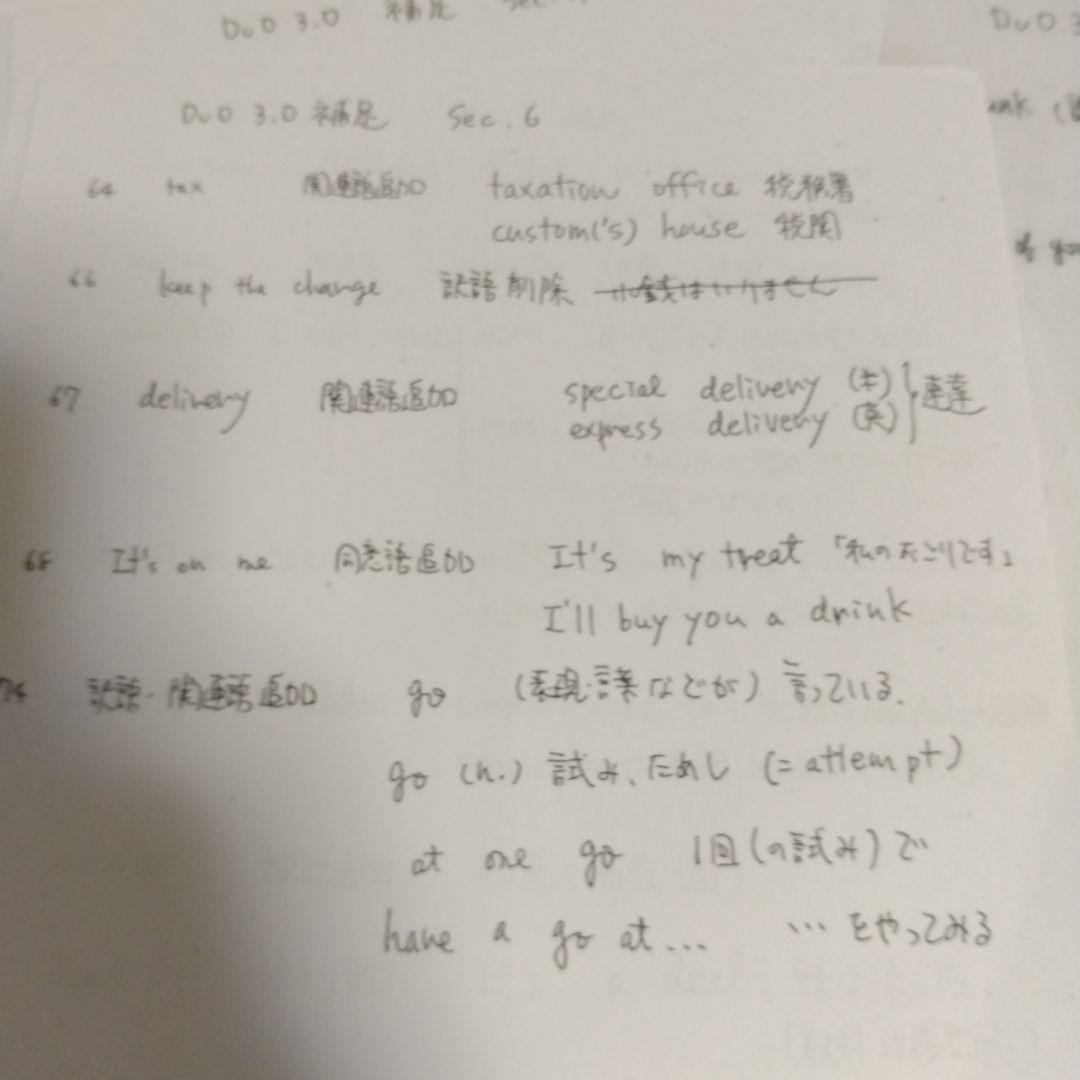 DUO 3.0 補足
DUO 3
Duo 3.0 補足 Sec. 6
64 tax 関連語追加 taxation office 税務署
custom('s) house 税関
66 keep the change 訳語削除 小銭はいりません
67 delivery 関連語追加 special delivery (米)
express delivery (英) } 速達
68 It's on me 同意語追加 It's my treat 「私のおごりです」
I'll buy you a drink
訳語・関連語追加 go (表現・言葉などが) 言っている.
go (n.) 試み、ためし (= attempt)
at one go 1回(の試み)で
have a go at... …をやってみる